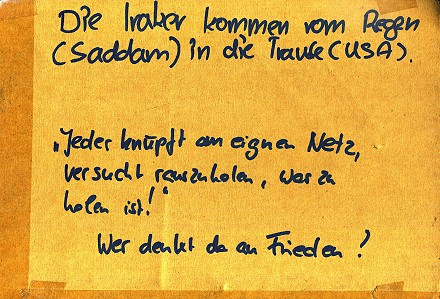 Die Iraker kommen vom Regen
(Saddam) in die Traufe (USA).
„Jeder knüpft am eignen Netz,
versucht rauszuholen, was zu
holen ist!“
Wer denkt da an Frieden?